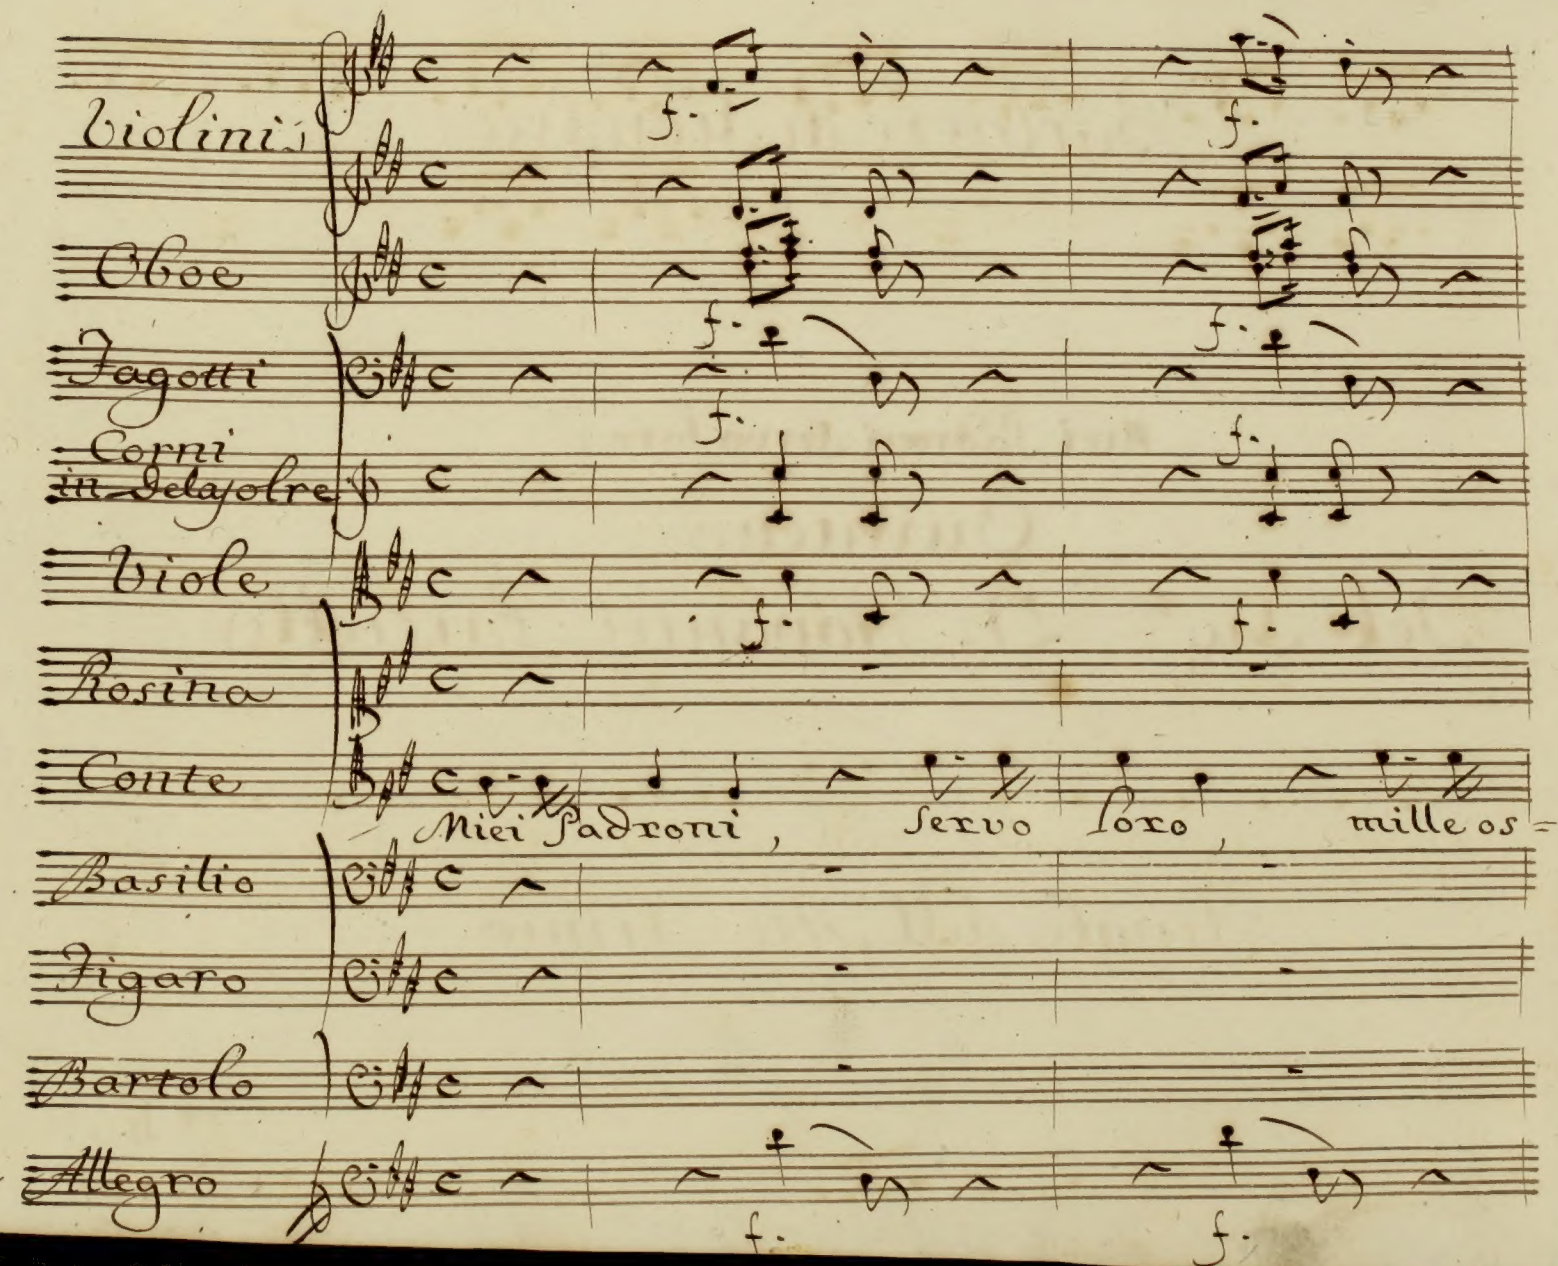 Violini
f. f.
Oboe
f. f.
Fagotti
f. f.
Corni
in Delasolre
Viole
f. f.
Rosina
Conte
Miei Padroni, servo loro, mille os=
Basilio
Figaro
Bartolo
Allegro
f. f.